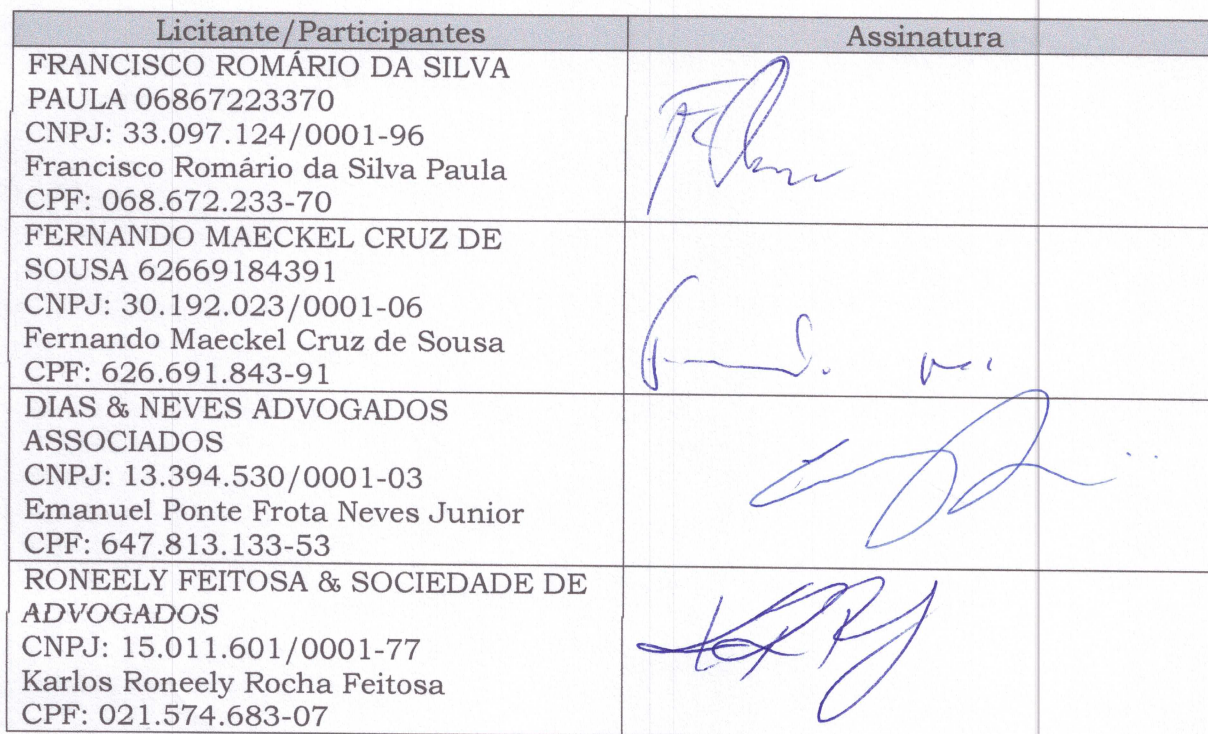 Licitante/Participantes Assinatura
FRANCISCO ROMÁRIO DA SILVA
PAULA 06867223370
CNPJ: 33.097.124/0001-96
Francisco Romário da Silva Paula
CPF: 068.672.233-70
FERNANDO MAECKEL CRUZ DE
SOUSA 62669184391
CNPJ: 30.192.023/0001-06
Fernando Maeckel Cruz de Sousa
CPF: 626.691.843-91
DIAS & NEVES ADVOGADOS
ASSOCIADOS
CNPJ: 13.394.530/0001-03
Emanuel Ponte Frota Neves Junior
CPF: 647.813.133-53
RONEELY FEITOSA & SOCIEDADE DE
ADVOGADOS
CNPJ: 15.011.601/0001-77
Karlos Roneely Rocha Feitosa
CPF: 021.574.683-07